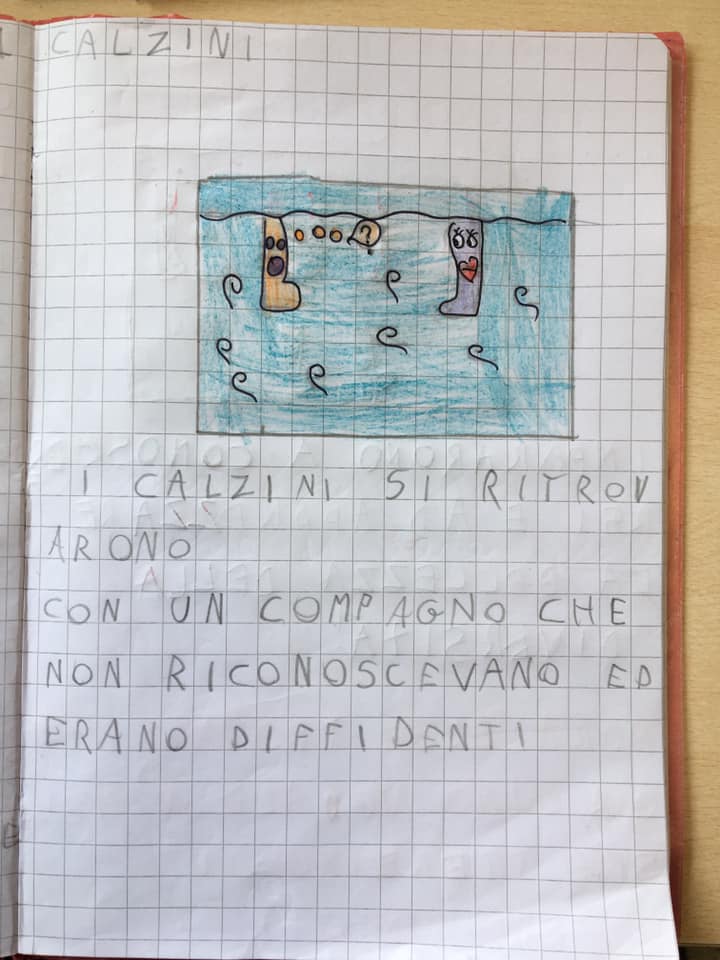 CALZINI
?
I CALZINI SI RITROV
ARONO
CON UN COMPAGNO CHE
NON RICONOSCEVANO ED
ERANO DIFFIDENTI